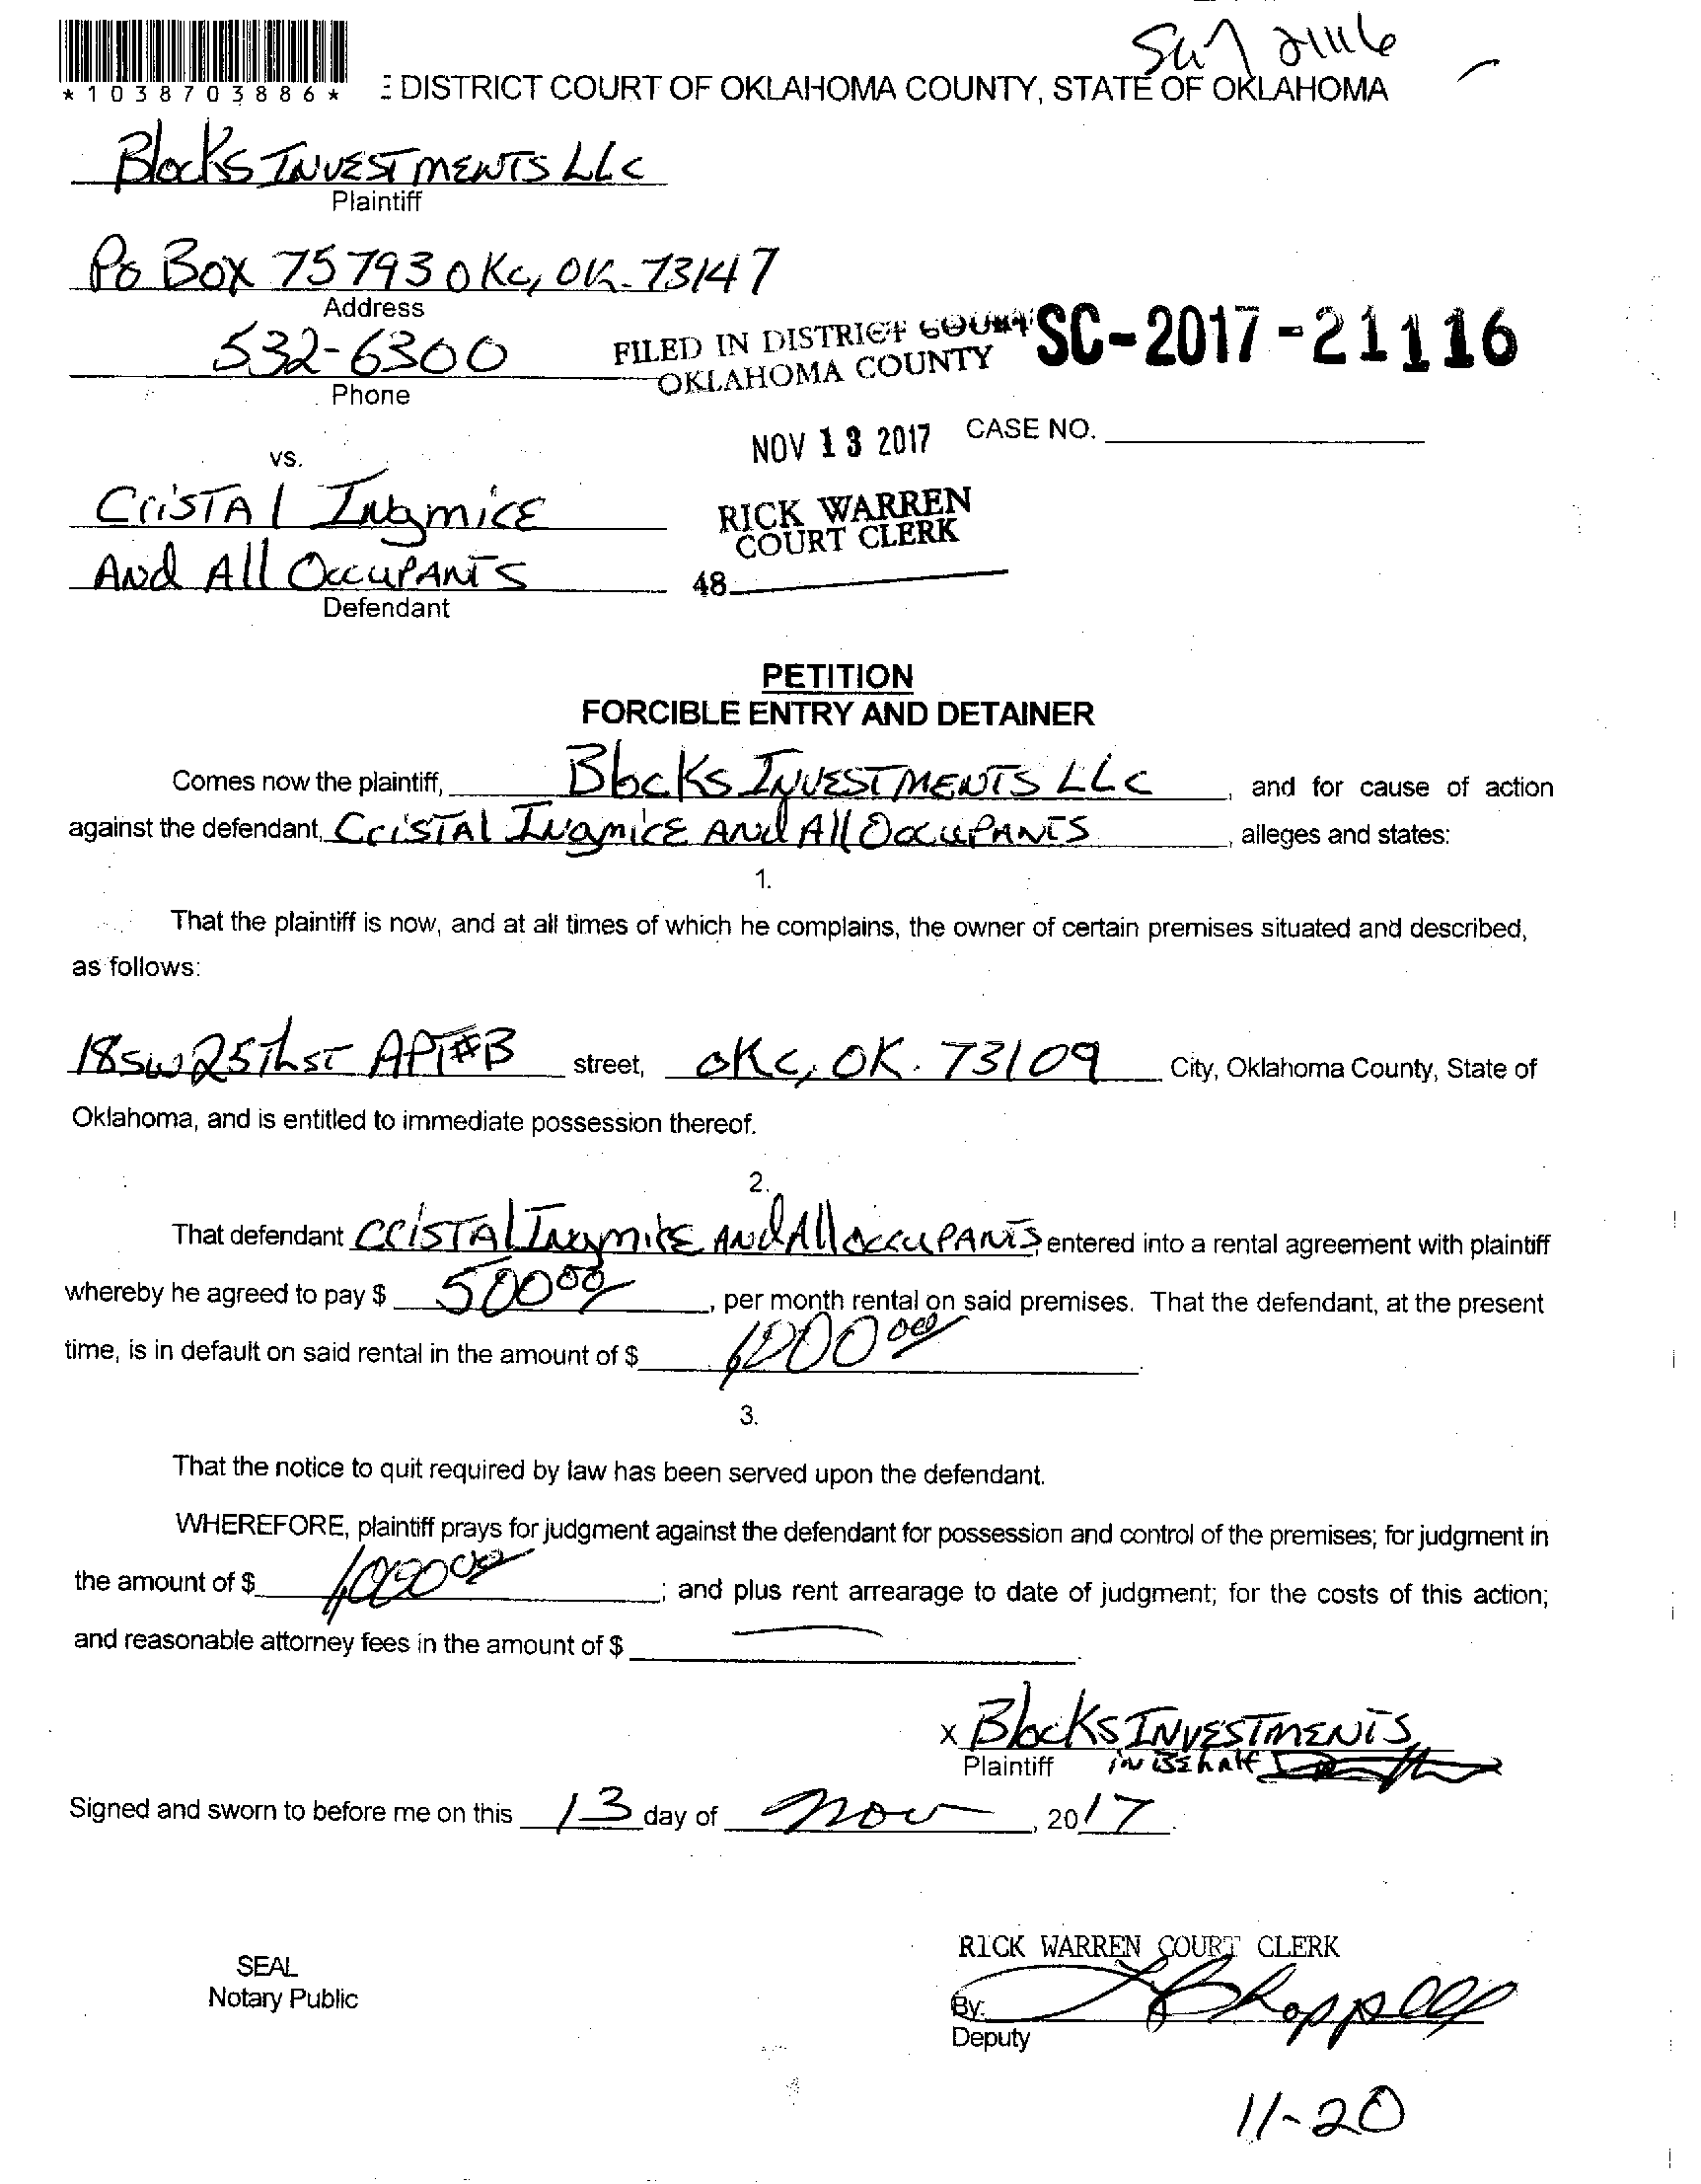 * 1 0 3 8 7 0 3 8 8 6 *
DISTRICT COURT OF OKLAHOMA COUNTY, STATE OF OKLAHOMA
Blocks INVESTMENTS LLC
Plaintiff
Po Box 75793 OKC, OK. 73147
Address
532-6300
Phone
FILED IN DISTRICT COURT
OKLAHOMA COUNTY
SC-2017-21116
NOV 13 2017
CASE NO.
vs.
RICK WARREN
COURT CLERK
48
CrisTAl
And All OccuPANTS
Defendant
PETITION
FORCIBLE ENTRY AND DETAINER
Comes now the plaintiff, Blocks INVESTMENTS LLC, and for cause of action
against the defendant, CrisTAl And All OccuPANTS, alleges and states:
1.
That the plaintiff is now, and at all times of which he complains, the owner of certain premises situated and described,
as follows:
18 SW 25Th ST APT#B street, OKC, OK. 73109 City, Oklahoma County, State of
Oklahoma, and is entitled to immediate possession thereof.
2.
That defendant CrisTAl And All OccuPANTS, entered into a rental agreement with plaintiff
whereby he agreed to pay $ 500 00, per month rental on said premises. That the defendant, at the present
time, is in default on said rental in the amount of $
3.
That the notice to quit required by law has been served upon the defendant.
WHEREFORE, plaintiff prays for judgment against the defendant for possession and control of the premises; for judgment in
the amount of $ 1,000 00; and plus rent arrearage to date of judgment; for the costs of this action;
and reasonable attorney fees in the amount of $
x Blocks INVESTMENTS
Plaintiff in Behalf
Signed and sworn to before me on this 13 day of Nov, 2017.
SEAL
Notary Public
RICK WARREN COURT CLERK
By:
Deputy
11-20